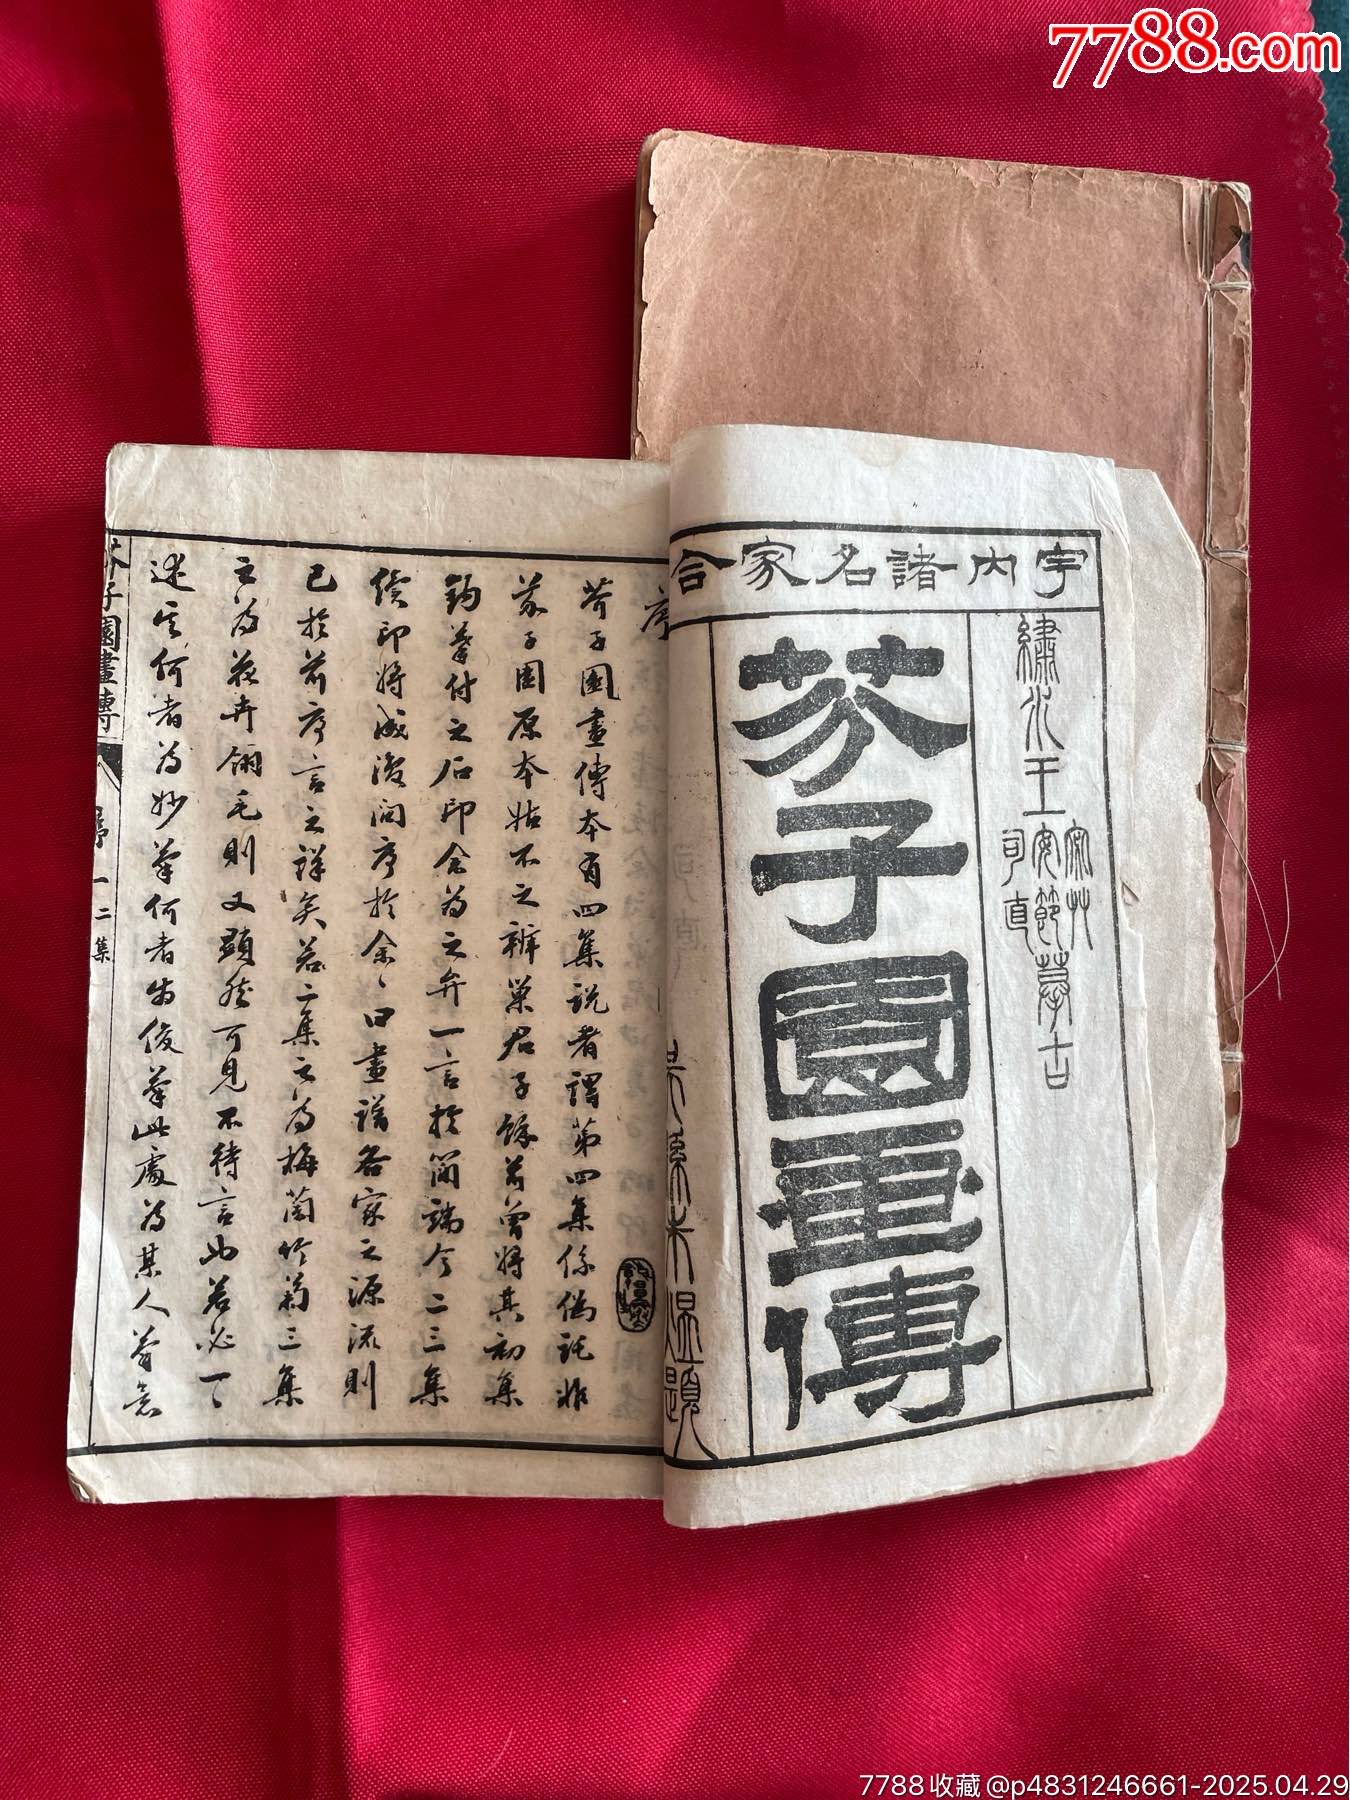 7788.com
宇内諸名家合
繡水王安節摹古
宓草
司直
芥子園畫傳
序
芥子園畫傳本有四集說者謂第四集係偽託非
芥子園原本姑不之辨巢君子餘前曾將其初集
鈎摹付之石印余為之弁一言於簡端今二三集
續印將成復問序於余余曰畫譜各家之源流則
已於前序言之詳矣若二集之為梅蘭竹菊三集
之為花卉翎毛則又顯然可見不待言也若必一一
述其何者為妙筆何者為俊筆此處為某人筆意
芥子園畫傳
序
一
二集
7788收藏@p4831246661-2025.04.29